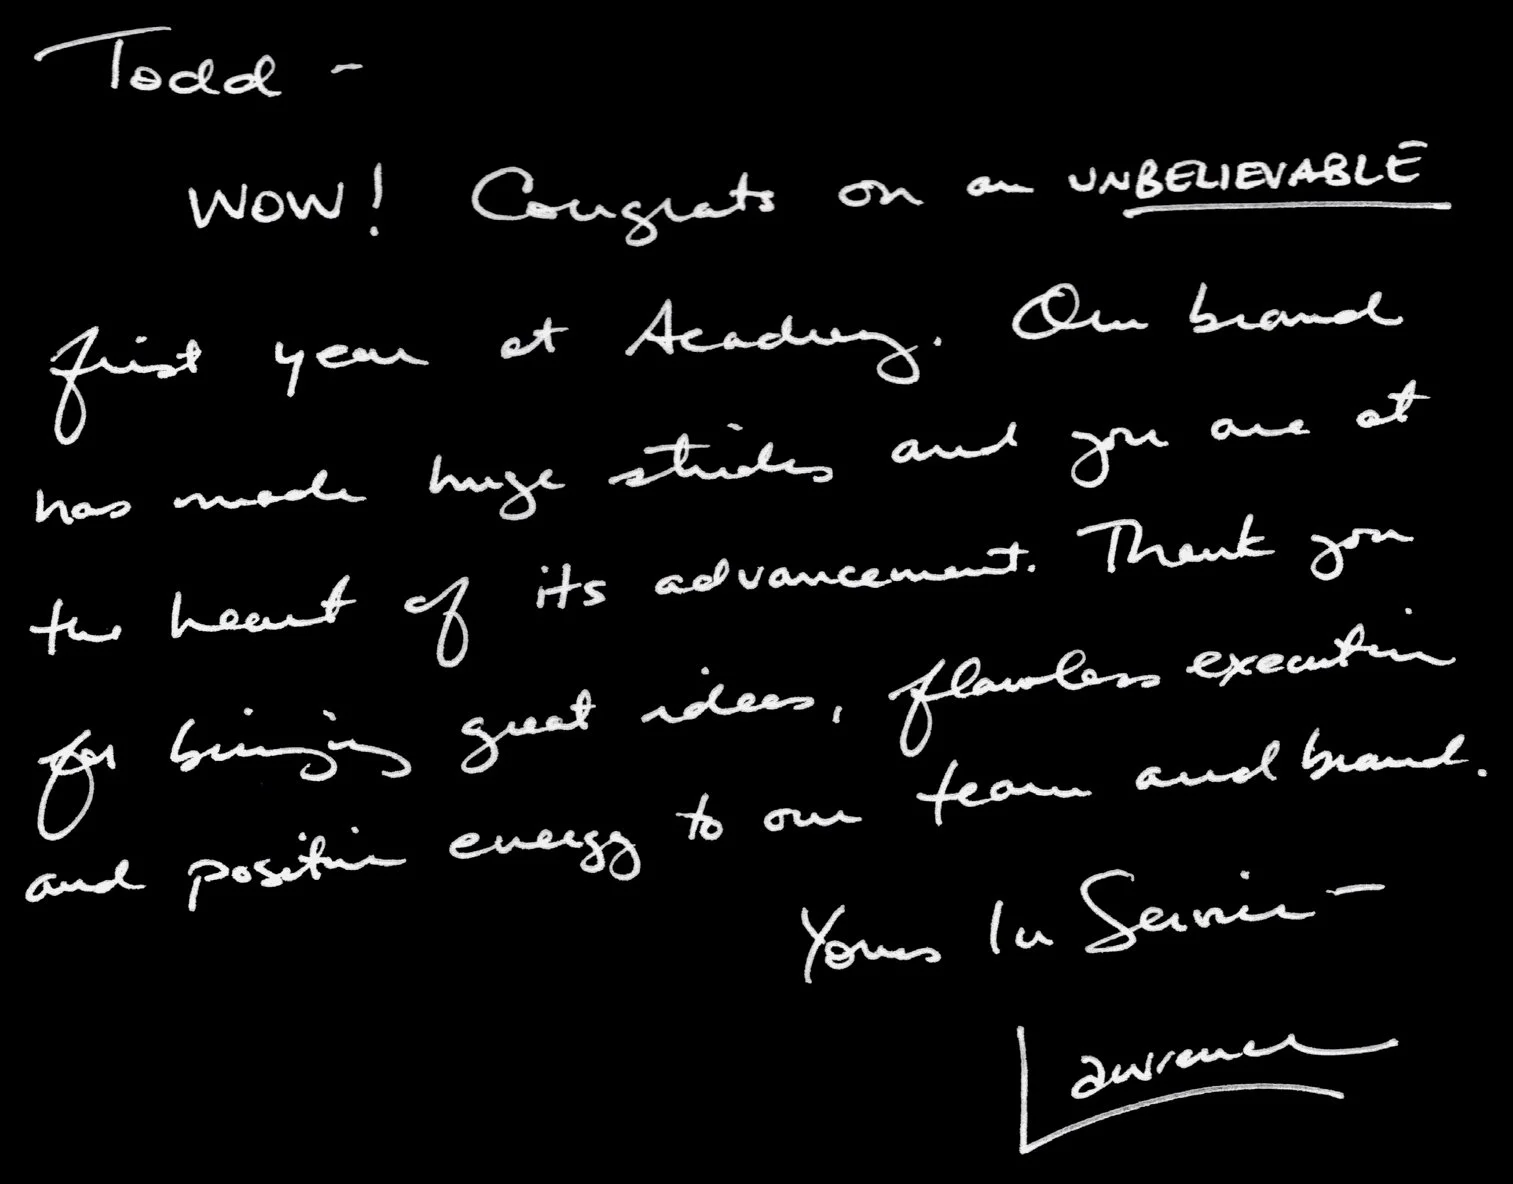 Todd -
WOW! Congrats on an UNBELIEVABLE
first year at Academy. Our brand
has made huge strides and you are at
the heart of its advancement. Thank you
for bringing great ideas, flawless execution
and positive energy to our team and brand.
Yours In Service -
Lawrence